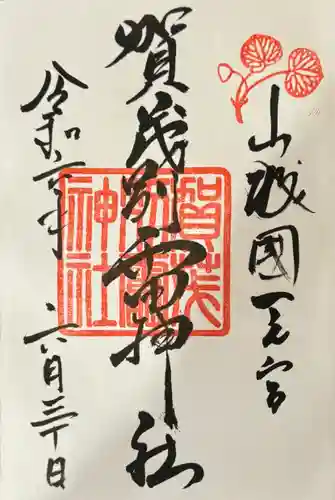 山城國一之宮
賀茂別雷神社
令和元年
六月三十日
賀茂
別雷
神社